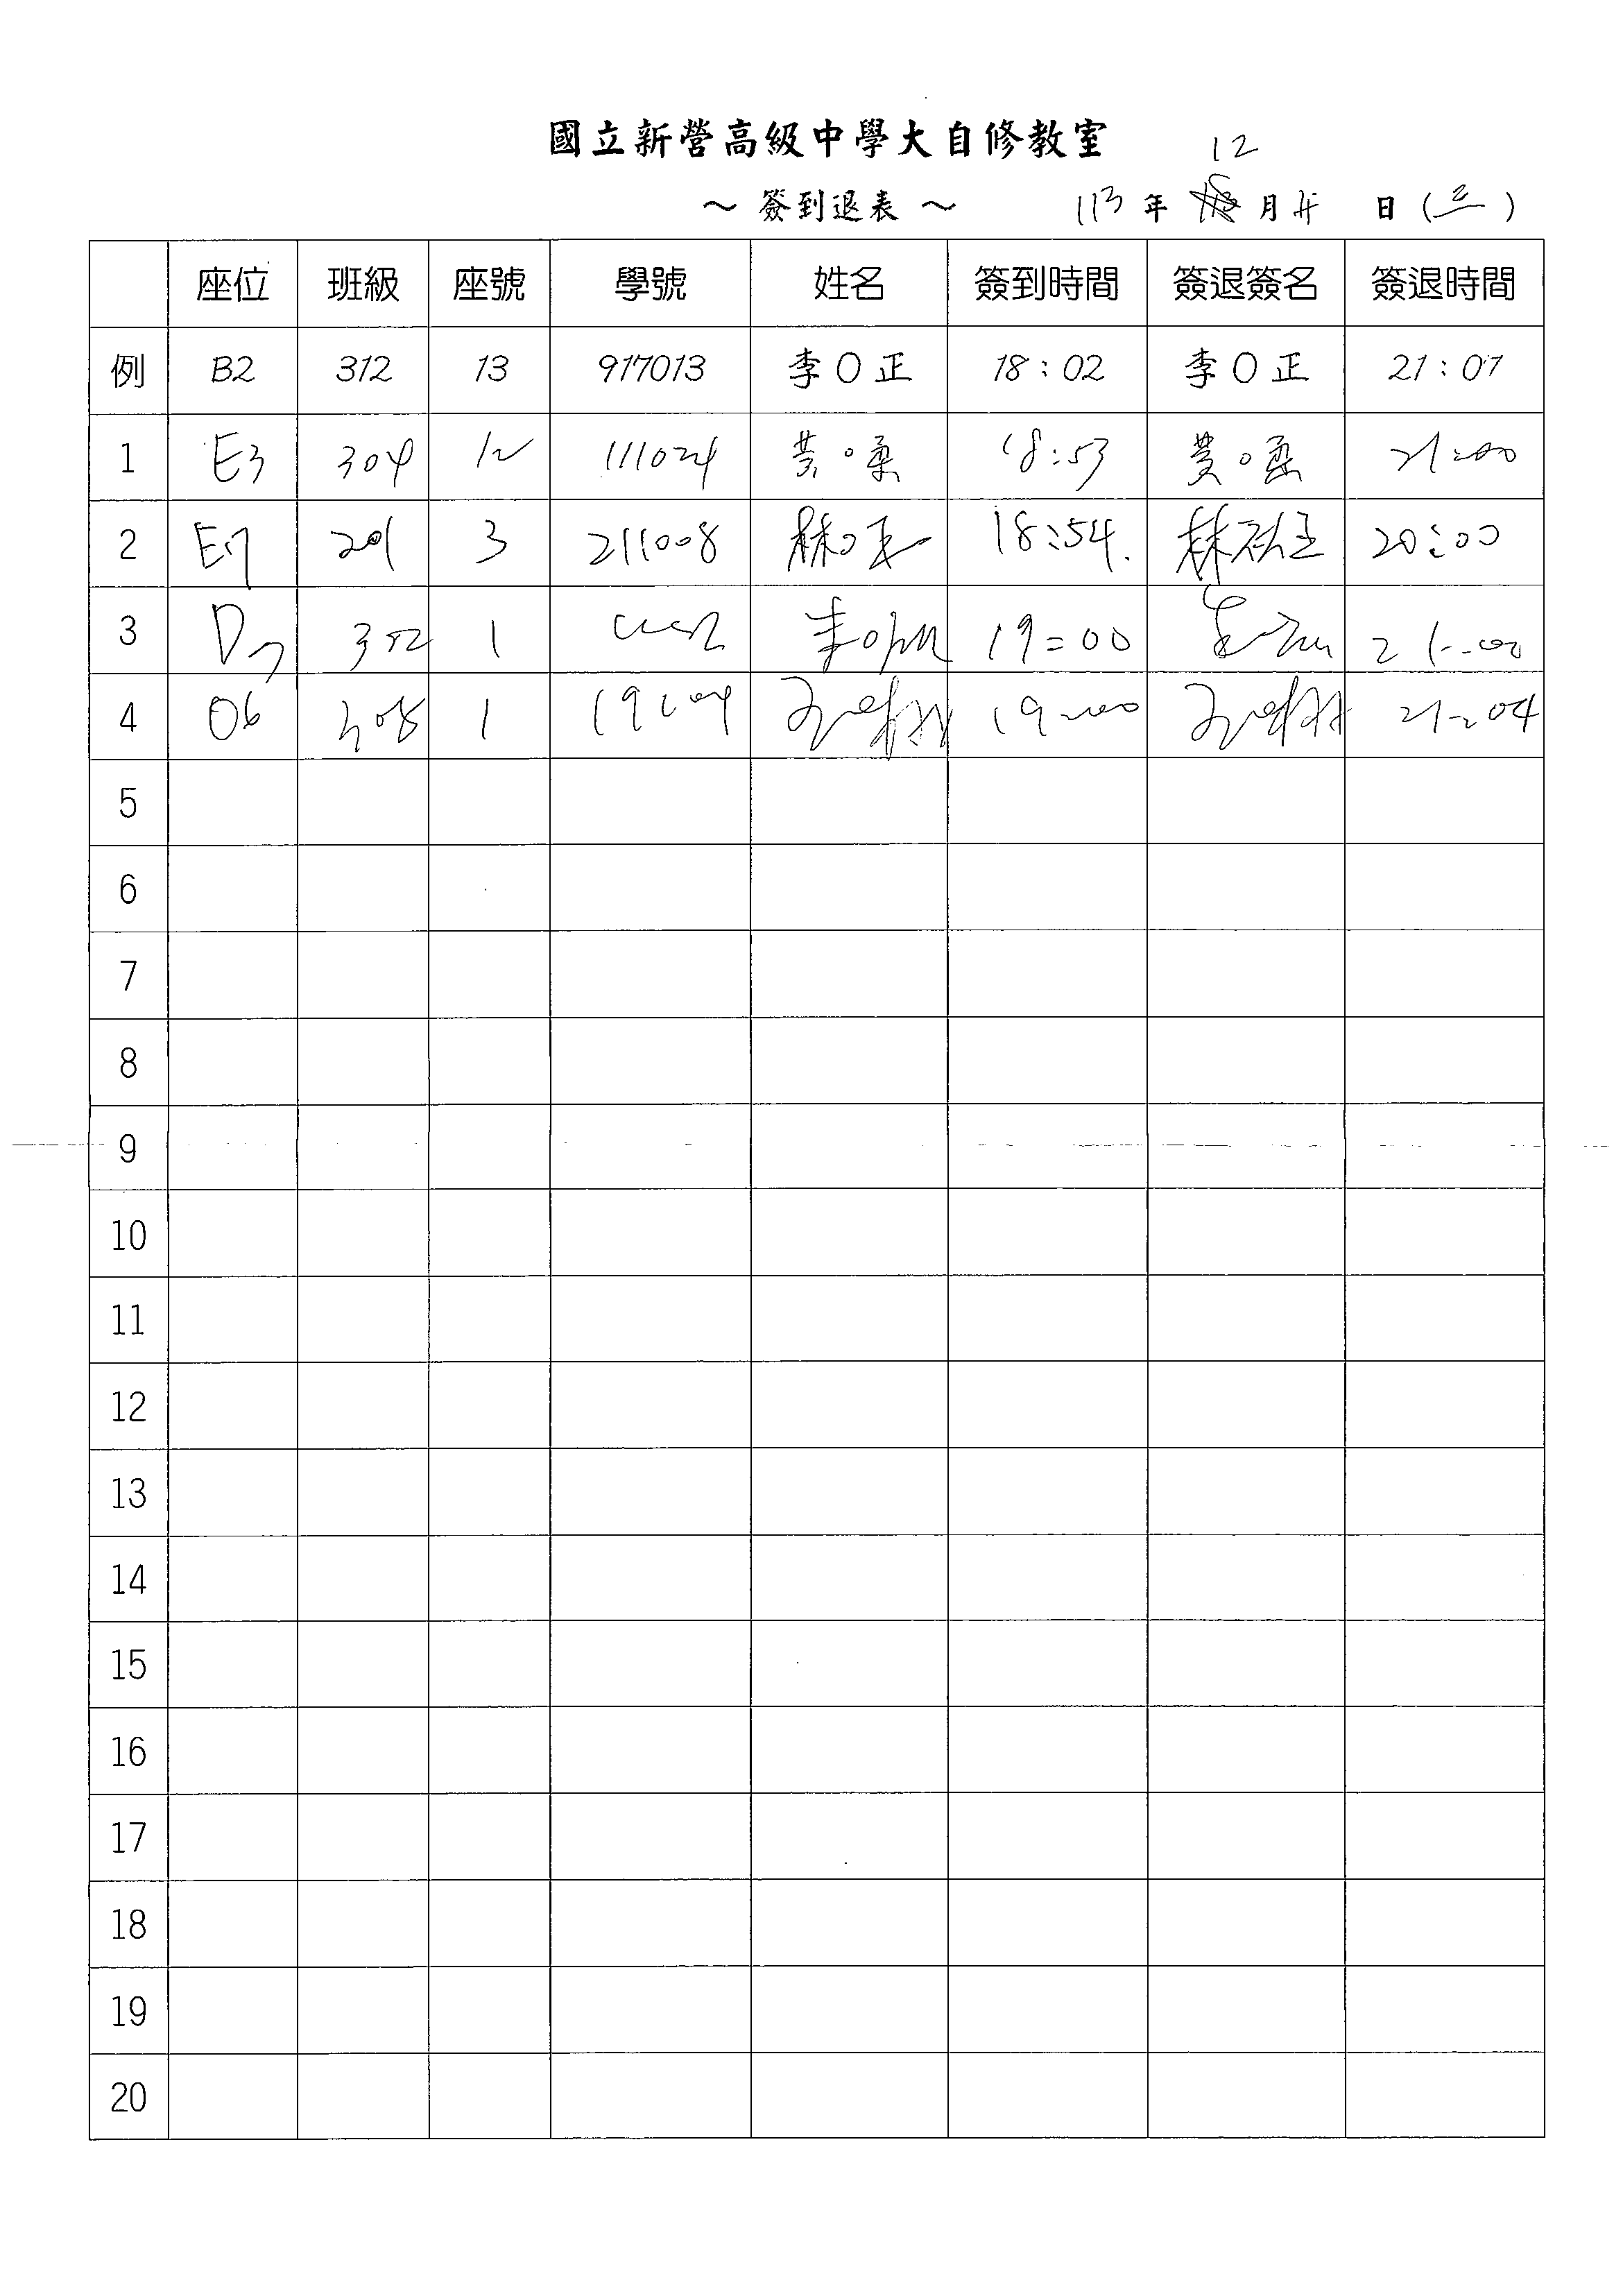 國立新營高級中學大自修教室
12
～ 簽到退表 ～ 113 年 月 日 ( 三 )
座位 班級 座號 學號 姓名 簽到時間 簽退簽名 簽退時間
例 B2 312 13 917013 李○正 18:02 李○正 21:07
1 E3 304 12 111024 黃○柔 18:53 黃○柔 21:00
2 E7 201 3 211008 林○ 18:54. 林 20:00
3 D7 352 1 李○ 19:00 21:00
4 D6 308 1 19:00 21:04
5
6
7
8
9
10
11
12
13
14
15
16
17
18
19
20